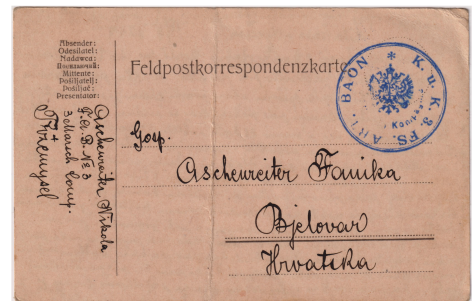 Absender:
Odesílatel:
Nadawca:
Mittente:
Pošiljatelj:
Pošiljač:
Presentator:
Aschenreiter Nikola
F. A. B. No 3
3 March Comp.
Przemysel
Feldpostkorrespondenzkarte
K. u. K. 3. FS. ART. BAON *
Gosp.
Aschenreiter Fanika
Bjelovar
Hrvatska